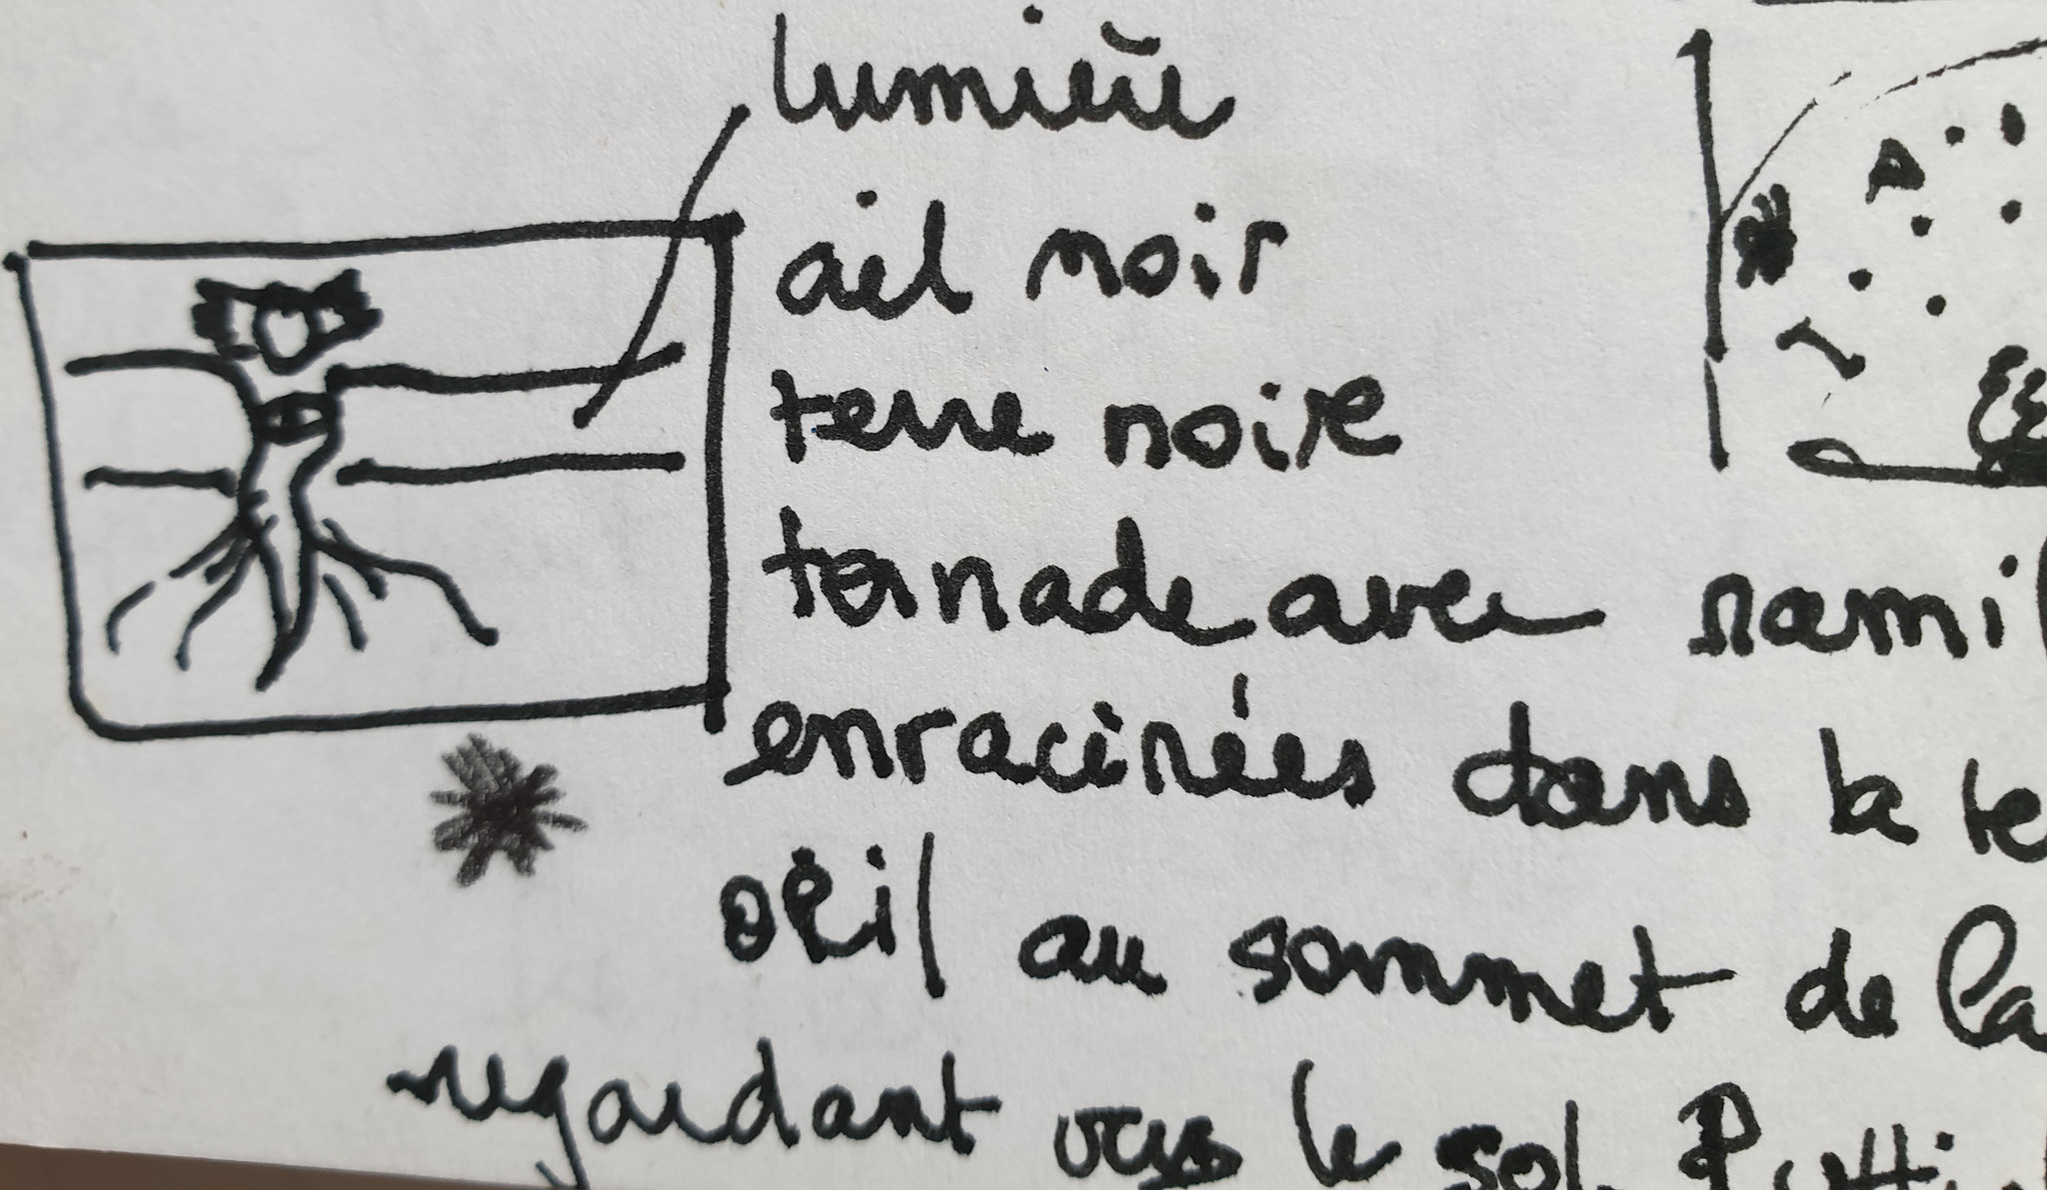 lumière
ciel noir
terre noire
tornade avec rami
enracinées dans la te
oeil au sommet de la
regardant vers le sol.